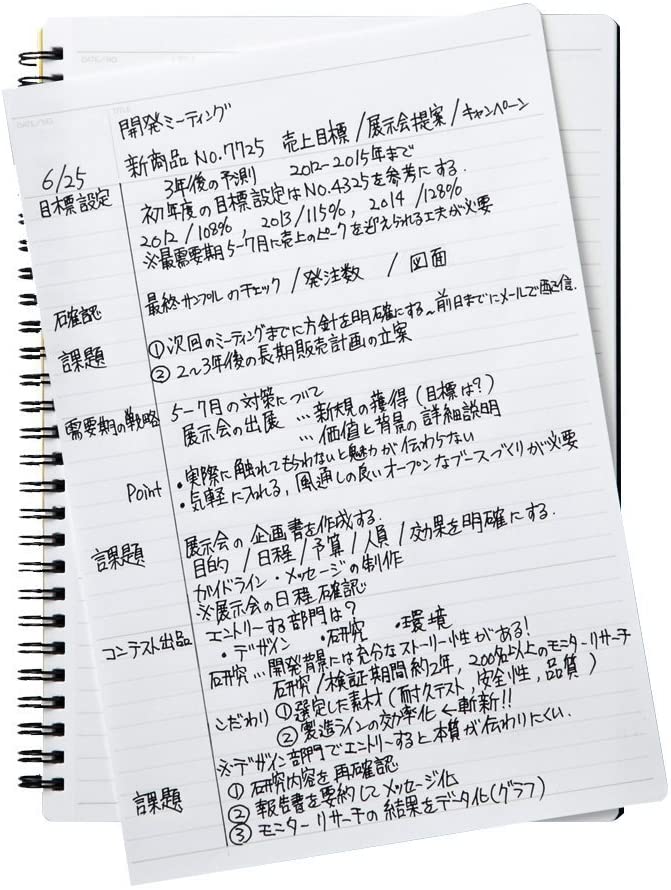 DATE/NO.
DATE/NO. TITLE
開発ミーティング
6/25 新商品 No.7725 売上目標/展示会提案/キャンペーン
目標設定 3年後の予測 2012-2015年まで
初年度の目標設定はNo.4325を参考にする.
2012/108%, 2013/115%, 2014/128%
※最需要期5-7月に売上のピークを迎えられる工夫が必要
確認 最終サンプルのチェック/発注数 /図面
課題 ①次回のミーティングまでに方針を明確にする~前日までにメールで配信.
②2~3年後の長期販売計画の立案
需要期の戦略 5-7月の対策について
展示会の出展 …新規の獲得(目標は?)
…価値と背景の詳細説明
Point ・実際に触れてもらわないと魅力が伝わらない
・気軽に入れる,風通しの良いオープンなブースづくりが必要
課題 展示会の企画書を作成する.
目的/日程/予算/人員/効果を明確にする.
ガイドライン・メッセージの制作
※展示会の日程確認
コンテスト出品 エントリーする部門は?
・デザイン ・研究 ・環境
研究…開発背景には充分なストーリー性がある!
研究/検証期間約2年,200名以上のモニターリサーチ
こだわり ①選定した素材(耐久テスト,安全性,品質)
②製造ラインの効率化←斬新!!
※デザイン部門でエントリーすると本質が伝わりにくい.
課題 ①研究内容を再確認
②報告書を要約してメッセージ化
③モニターリサーチの結果をデータ化(グラフ)